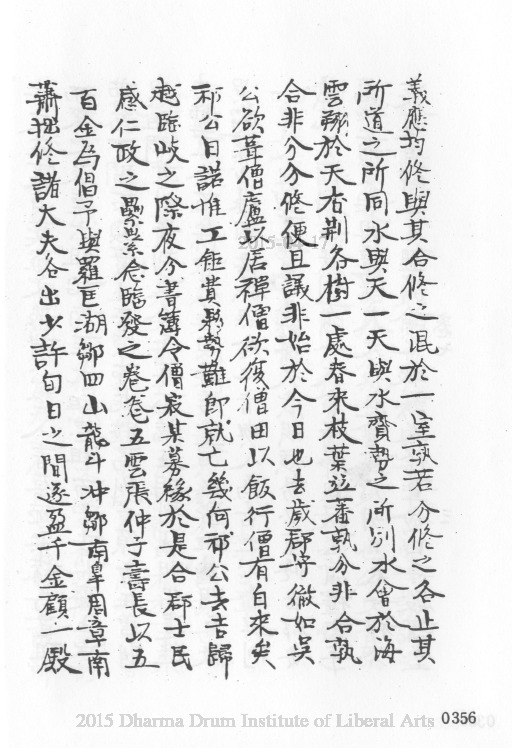 義應均修與其合修之混於一室孰若分修之各止其
所道之所同水與天一天與水實勢之所別水會於海
雲歸於天杏荆各樹一處春來枝葉並蕃孰分非合孰
合非分分修便且議非始於今日也去歲郡守徹如吳
公欲葺僧廬以居禪僧欲復僧田以飯行僧有自來矣
祁公曰諾惟工鉅費艱勢難即就亡幾何祁公去吉歸
越臨岐之際夜分書簿令僧寂某募緣於是合郡士民
感仁政之纍纍念臨發之卷卷五雲張仲子壽長以五
百金為倡予與羅匡湖鄒四山龍斗冲鄒南皋周章南
蕭拙修諸大夫各出少許旬日之間遂盈千金顧一殿
2015-02-17
2015 Dharma Drum Institute of Liberal Arts
0356